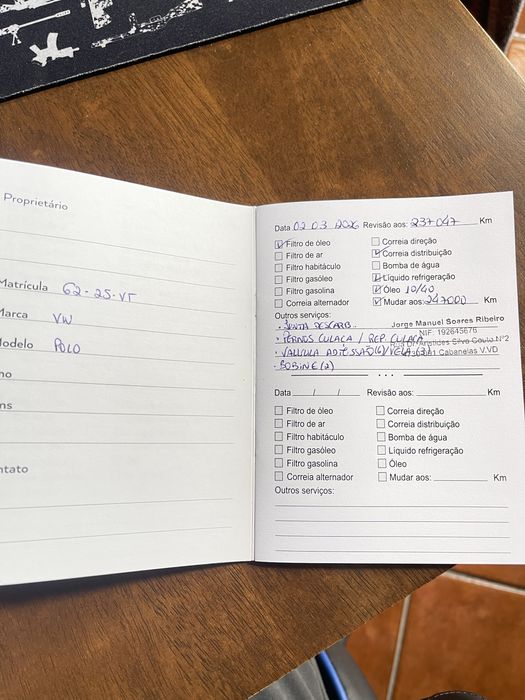 Proprietário
Matrícula 62-25-VT
Marca VW
Modelo POLO
Data 02 03 2026 Revisão aos: 237047 Km
Filtro de óleo
Filtro de ar
Filtro habitáculo
Filtro gasóleo
Filtro gasolina
Correia alternador
Correia direção
Correia distribuição
Bomba de água
Líquido refrigeração
Óleo 10/40
Mudar aos: 247000 Km
Outros serviços:
Jorge Manuel Soares Ribeiro
NIF: 192645676
Aristides Silva Couto Nº2
Cabanelas V.VD
· JUNTA DESCARB.
· PERNOS CULACA / REP CULACA
· VALVULA ADMISSÃO
· BOBINE (2)
Data / / Revisão aos: Km
Filtro de óleo
Filtro de ar
Filtro habitáculo
Filtro gasóleo
Filtro gasolina
Correia alternador
Correia direção
Correia distribuição
Bomba de água
Líquido refrigeração
Óleo
Mudar aos: Km
Outros serviços: